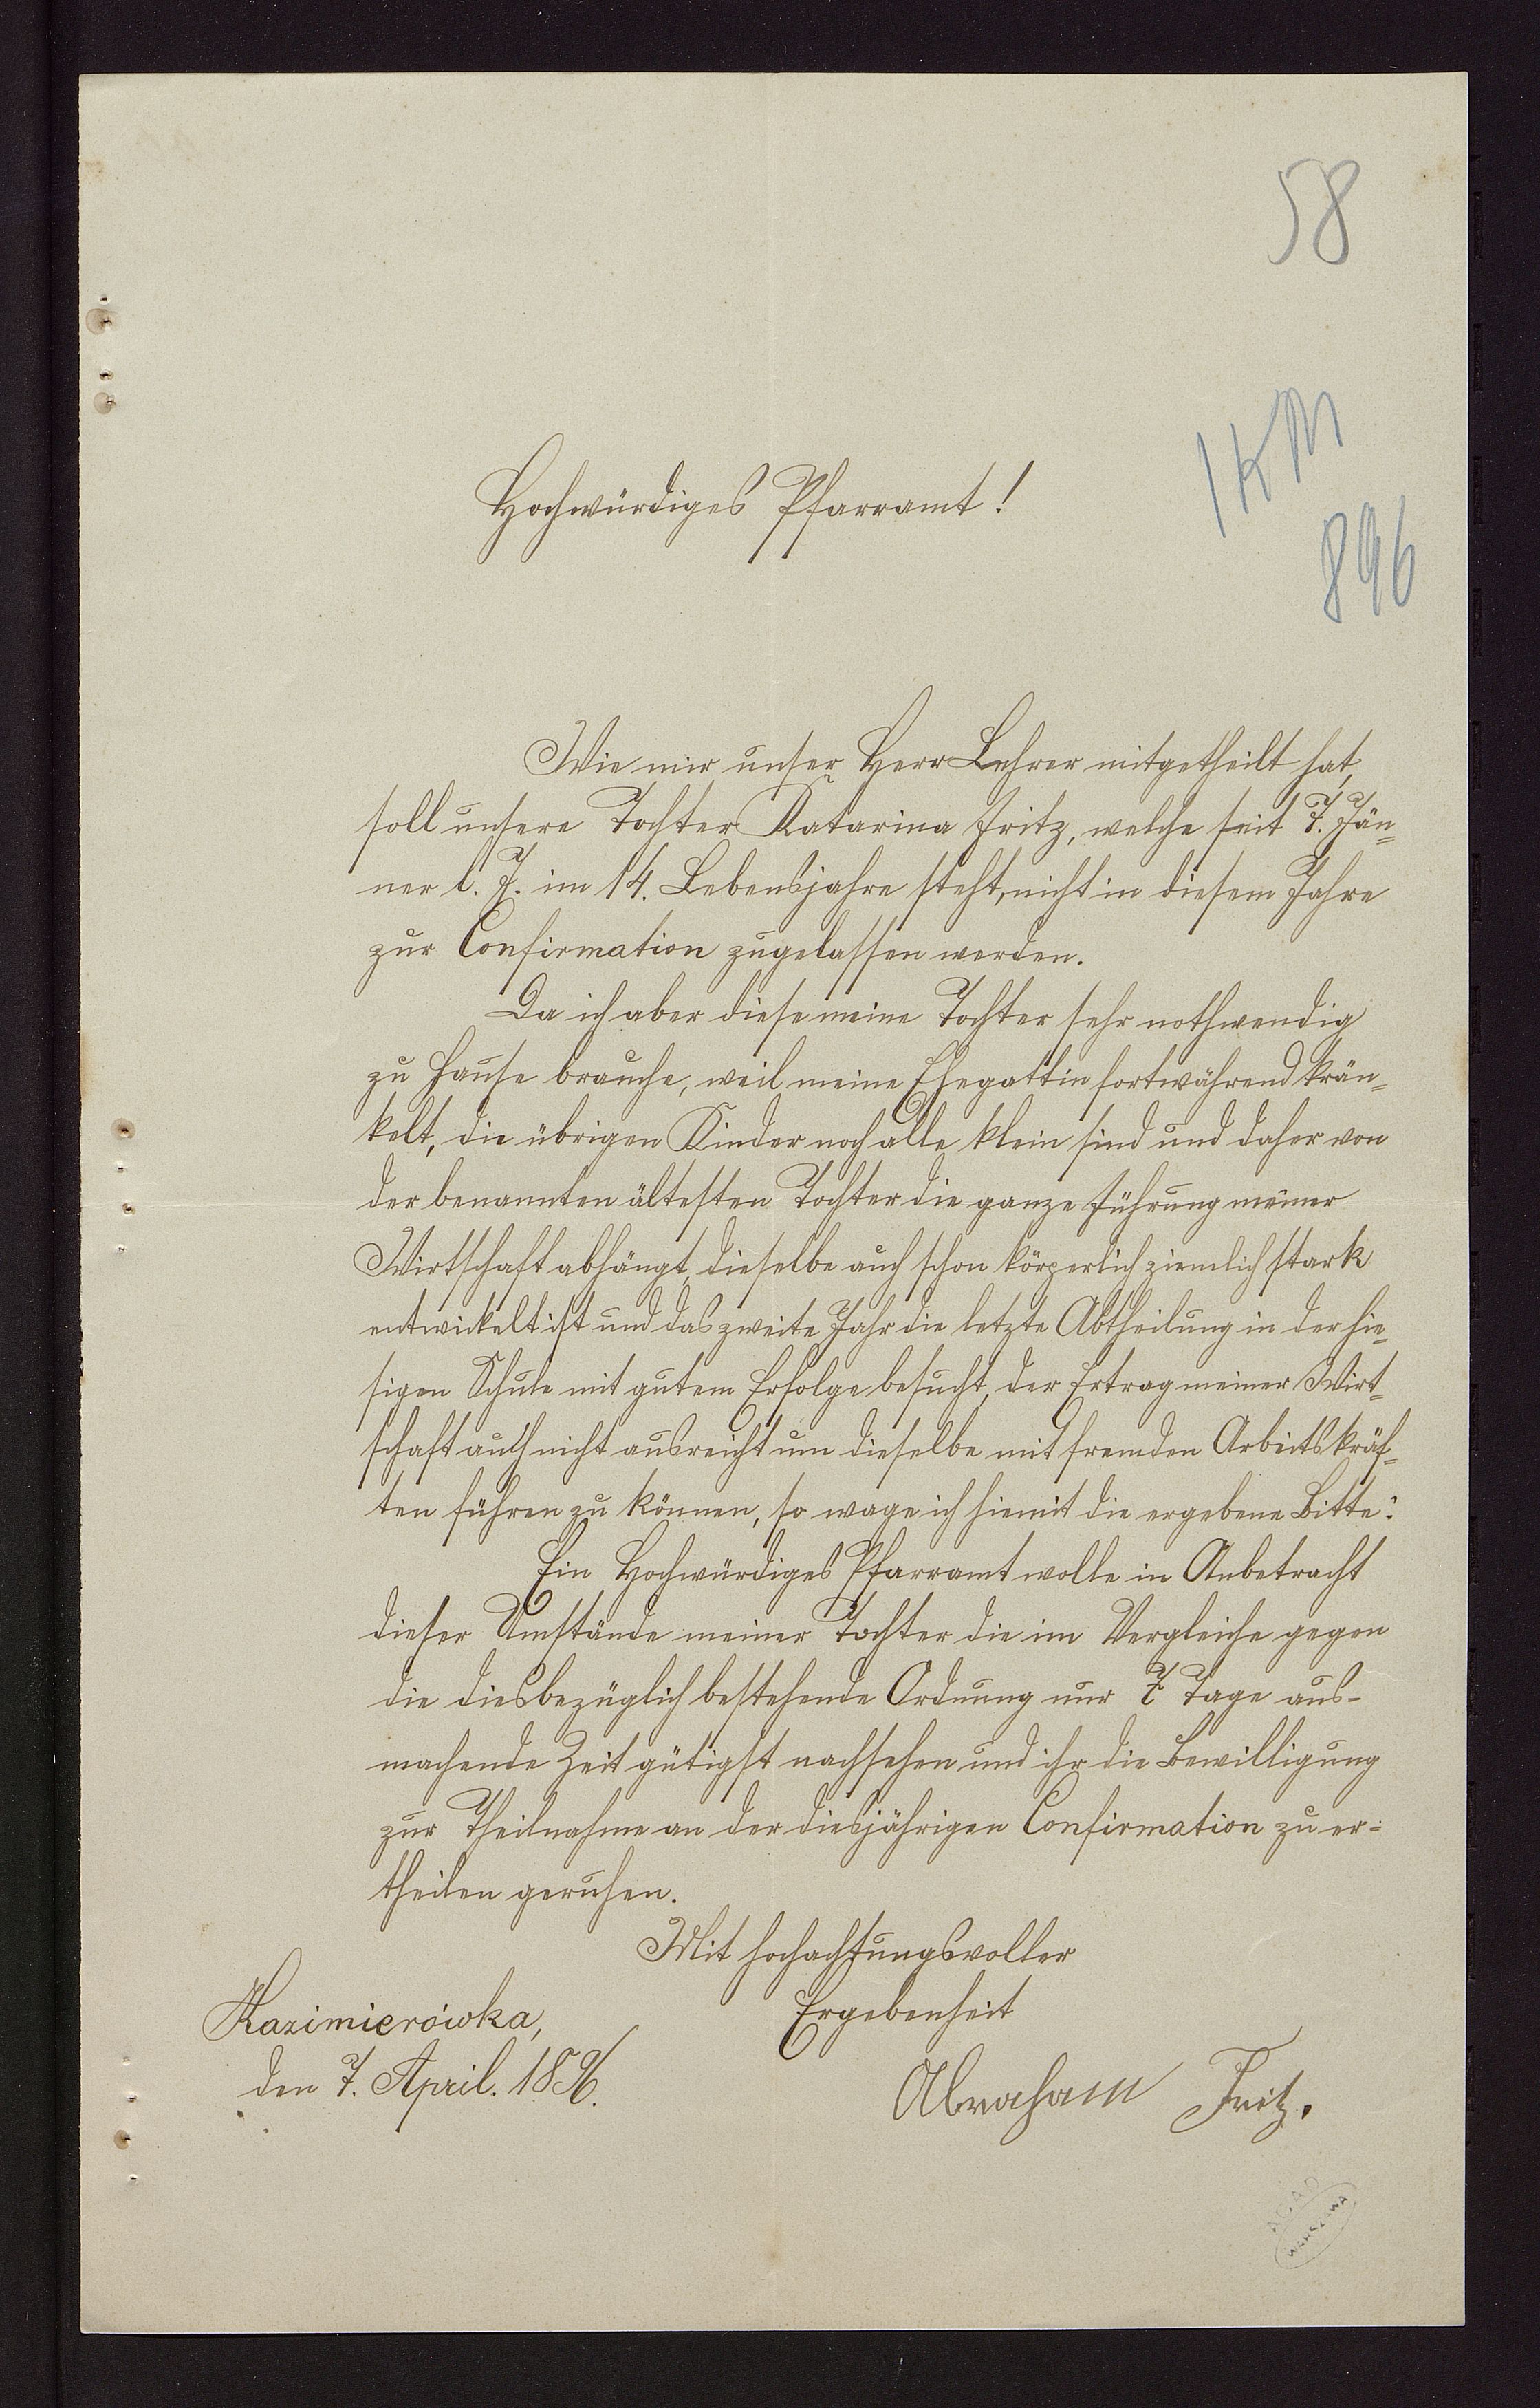 58
1KM
896
Hochwürdiges Pfarramt!
Wie mir unser Herr Lehrer mitgetheilt hat,
soll unsere Tochter Katarina Fritz, welche seit 7. Jän-
ner l. J. im 14. Lebensjahre steht, nicht in diesem Jahre
zur Confirmation zugelassen werden.
Da ich aber diese meine Tochter sehr nothwendig
zu Hause brauche, weil meine Ehegattin fortwährend krän-
kelt, die übrigen Kinder noch alle klein sind und daher von
der benannten ältesten Tochter die ganze Führung meiner
Wirtschaft abhängt, dieselbe auch schon körperlich ziemlich stark
entwickelt ist und das zweite Jahr die letzte Abtheilung in der hie-
sigen Schule mit gutem Erfolge besucht, der Ertrag meiner Wirt-
schaft auch nicht ausreicht um dieselbe mit fremden Arbeitskräf-
ten führen zu können, so wage ich hiemit die ergebene Bitte:
Ein Hochwürdiges Pfarramt wolle in Anbetracht
dieser Umstände meiner Tochter die im Vergleiche gegen
die diesbezüglich bestehende Ordnung nur 7 Tage aus-
machende Zeit gütigst nachsehen und ihr die Bewilligung
zur Theilnahme an der diesjährigen Confirmation zu er-
theilen geruhen.
Mit hochachtungsvoller
Ergebenheit
Kazimierówka,
den 7. April. 1896.
Abraham Fritz.
AGAD
WARSZAWA